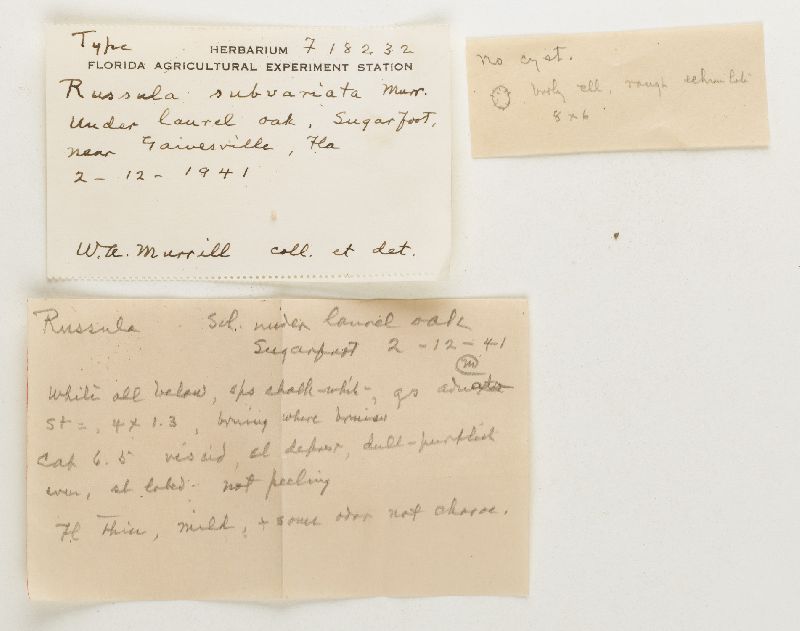 Type HERBARIUM F 18232
FLORIDA AGRICULTURAL EXPERIMENT STATION
Russula subvariata Murr.
Under laurel oak, Sugarfoot,
near Gainesville, Fla
2-12-1941
W.A. Murrill coll. et det.
no cyst.
ell, rough echinulate
8 x 6
Russula Sol. under laurel oak
Sugarfoot 2-12-41
M
White all below, sps chalk-white, gs
st =, 4 x 1.3, where bruised
Cap 6.5 viscid, sl depres, dull-purplish
even, sl lobed not peeling
Fl thin, mild, + odor not charac.